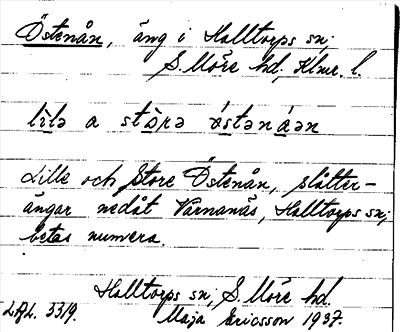 Östenån, äng i Halltorps sn;
S. Möre hd; Klmr. l.
lìlə a stòrə ó̀stənáən
Lille och Store Östenån, slåtter-
ängar nedåt Värnanäs, Halltorps sn;
betas numera.
Halltorps sn; S. Möre hd.
LAL. 3319. Maja Ericsson 1937.